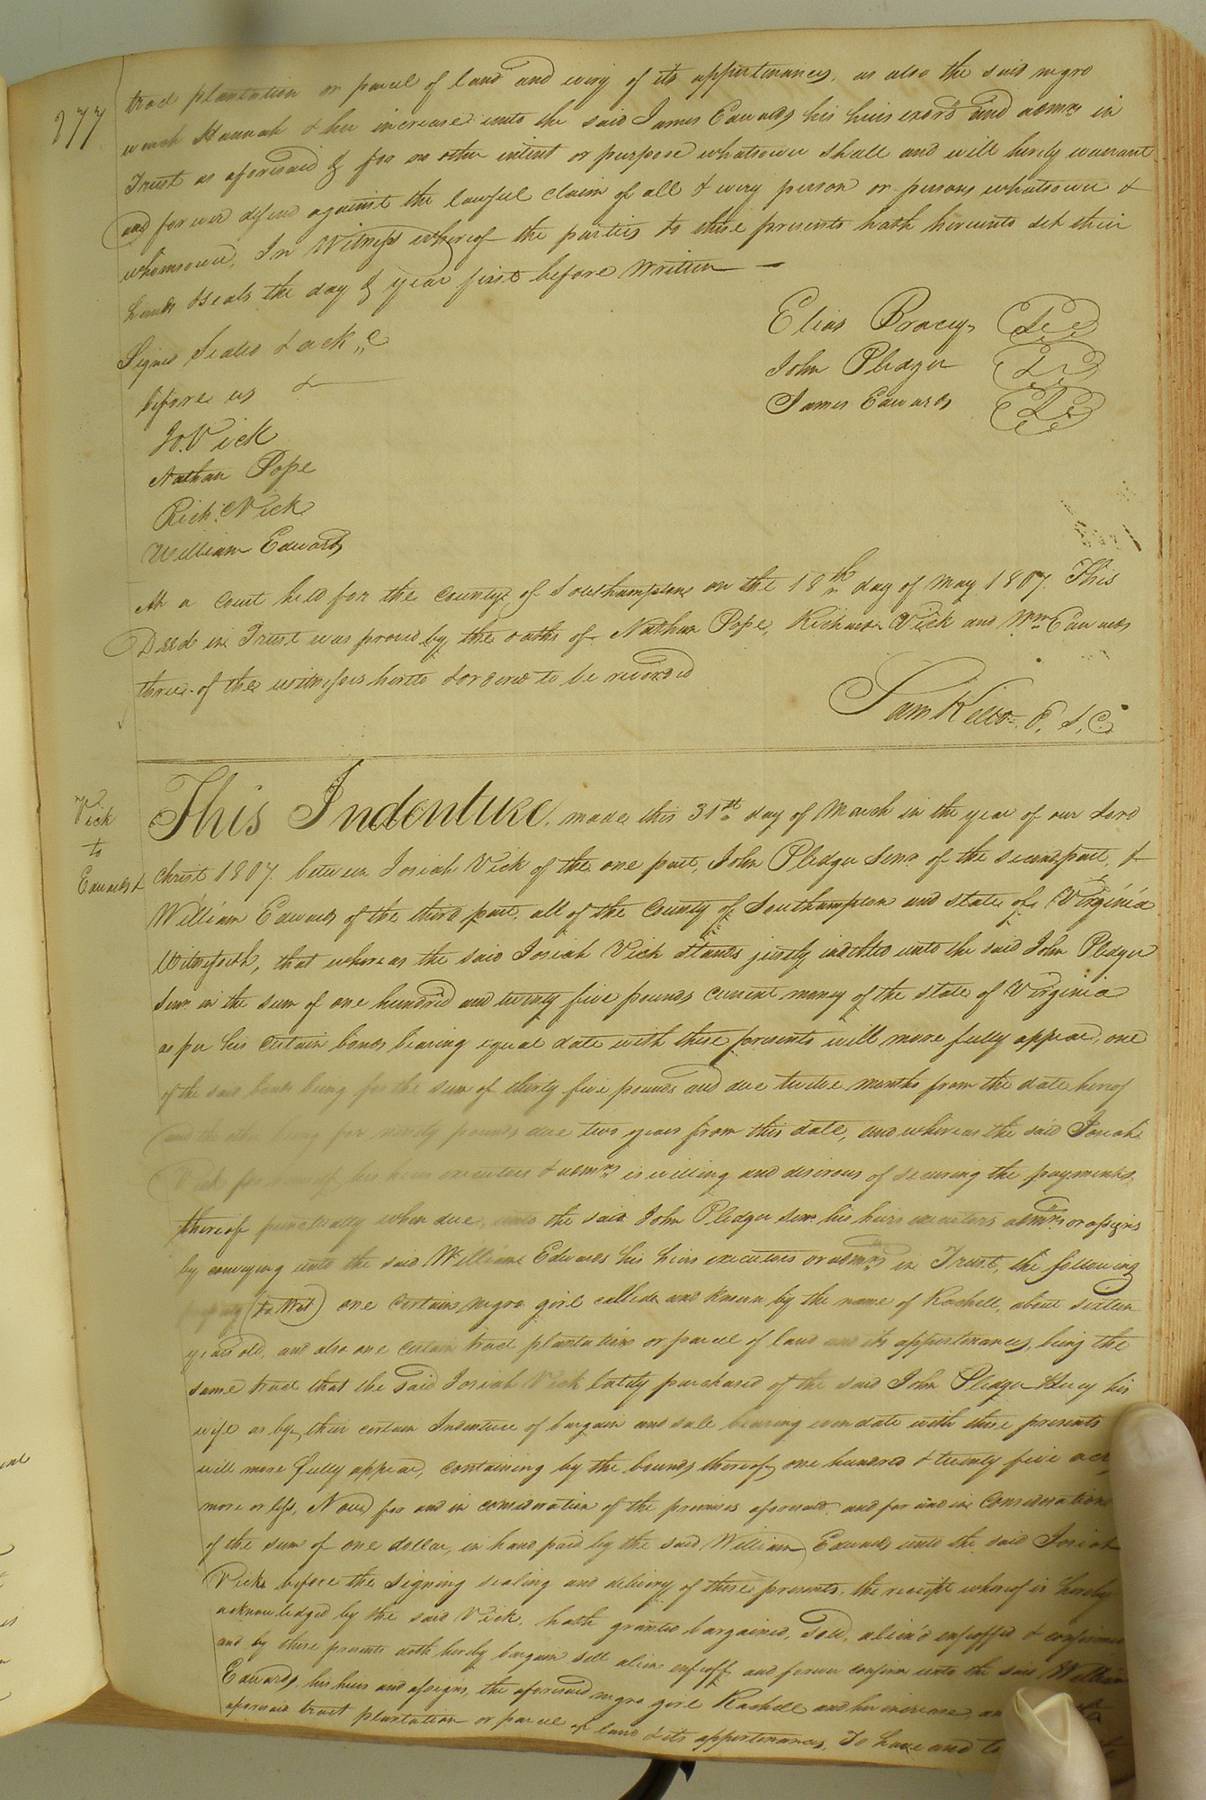 277
tract plantation or parcel of land and every of its appertenances, as also the said negro
wench Hannah & her increase unto the said James Edwards his heirs exors and admrs in
Trust as aforesaid & for no other intent or purpose whatsoever shall and will hereby warrant
and forever defend against the lawful claim of all & every person or persons whatsoever &
whomsoever, In Witness whereof the parties to these presents hath hereunto set their
hands & seals the day & year first before Written
Elias Bracy
Signed Sealed & ack
John Pledger
before us &
James Edwards
Jo. Vick
Nathan Pope
Rich. Vick
William Edwards
At a Court held for the County of Southampton on the 18th day of May 1807 This
Deed in Trust was proved by the oaths of Nathan Pope, Richard Vick and Wm Edwards
three of the witnesses hereto & ordered to be recorded
Sam Kello
Vick
to
Edwards &
This Indenture, made this 31st day of March in the year of our Lord
Christ 1807 between Josiah Vick of the one part, John Pledger Senr of the second part, &
William Edwards of the third part, all of the County of Southampton and State of Virginia
Witnesseth, that whereas the said Josiah Vick stands justly indebted unto the said John Pledger
Senr in the sum of one hundred and twenty five pounds current money of the state of Virginia
as per his certain bonds bearing equal date with these presents will more fully appear, one
of the said bonds being for the sum of thirty five pounds and due twelve months from the date hereof
and the other being for ninety pounds due two years from this date, and whereas the said Josiah
Vick for himself his heirs executors & admrs is willing and desirous of securing the payments
thereof punctually when due, unto the said John Pledger Senr his heirs executors admrs or assigns
by conveying unto the said William Edwards his heirs executors or admrs in Trust, the following
property (to Wit) one certain negro girl called and known by the name of Rachell, about sixteen
years old, and also one certain tract plantation or parcel of land and its appertenances, being the
same tract that the said Josiah Vick lately purchased of the said John Pledger & Lucy his
wife as by their certain Indenture of bargain and sale bearing even date with these presents
will more fully appear, containing by the bounds thereof one hundred & twenty five acr
more or less, Now for and in consideration of the premises aforesaid, and for and in consideration
of the sum of one dollar, in hand paid by the said William Edwards unto the said Josiah
Vick before the signing sealing and delivery of these presents, the receipt whereof is hereby
acknowledged by the said Vick, hath granted bargained, Sold, alien'd enfeoffed & confirmed
and by these presents doth hereby bargain sell alien enfeoff and forever confirm unto the said William
Edwards, his heirs and assigns, the aforesaid negro girl Rachell and her increase, an
aforesaid tract plantation or parcel of land & its appertenances, To have and to